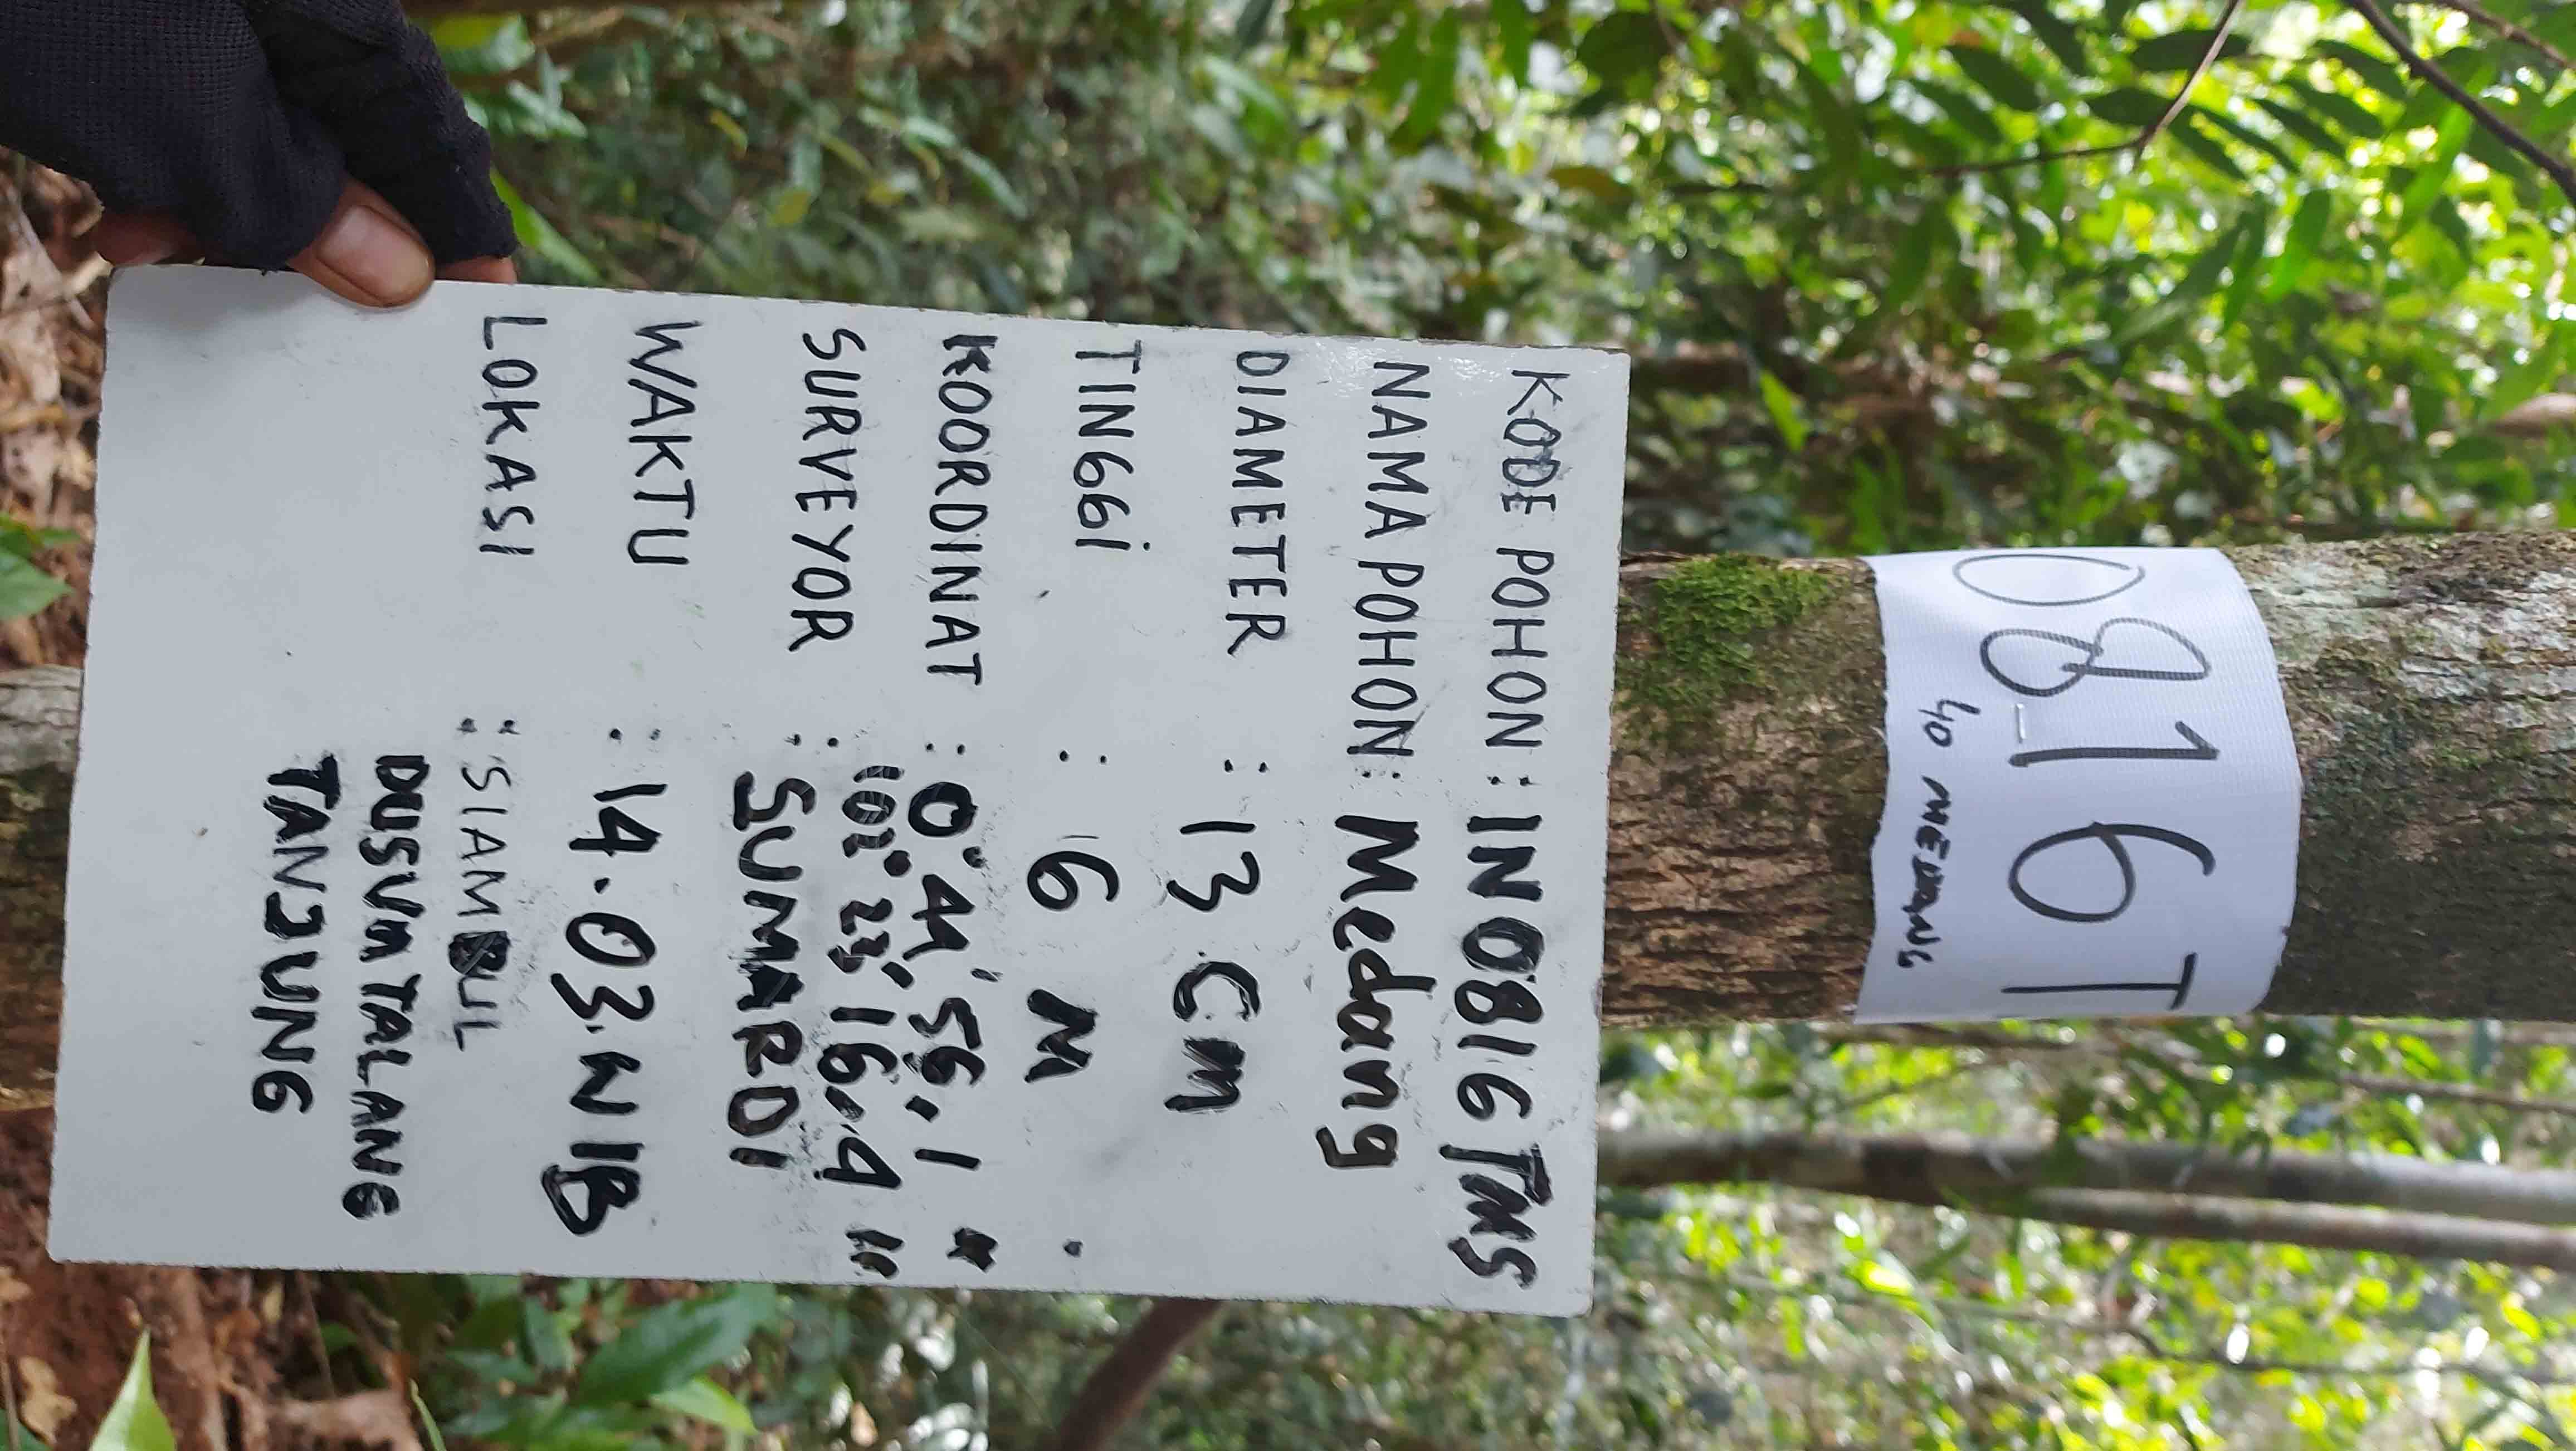 0816T
40 MEDANG
KODE POHON : IN0816TMS
NAMA POHON : Medang
DIAMETER : 13 cm
TINGGi : 6 M
KOORDINAT : 0° 44' 56,1"
102° 23' 16,9"
SURVEYOR : SUMARDI
WAKTU : 14.03.WIB
LOKASI : SIAMBUL
DUSUN TALANG
TANJUNG